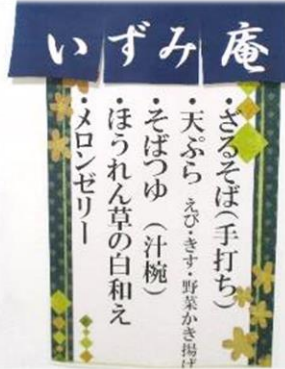 いずみ庵
・ざるそば(手打ち)
・天ぷら えび・きす・野菜かき揚げ
・そばつゆ (汁椀)
・ほうれん草の白和え
・メロンゼリー